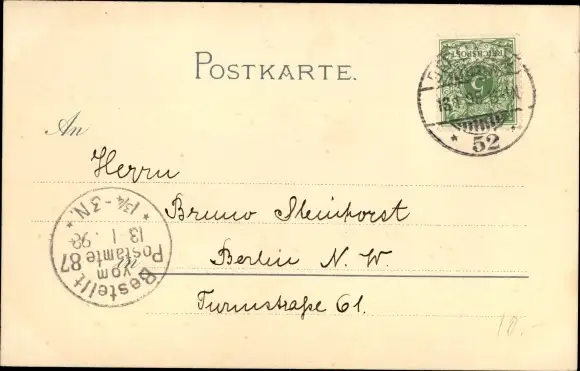 POSTKARTE.
REICHSPOST
5
13.1.98
* 52 *
An
Herrn
Bruno Steinhorst
in
Berlin N. W.
Turmstraße 61.
Bestellt
vom
Postamte 87
13-1.98
* 1¾-3N. *
10.-